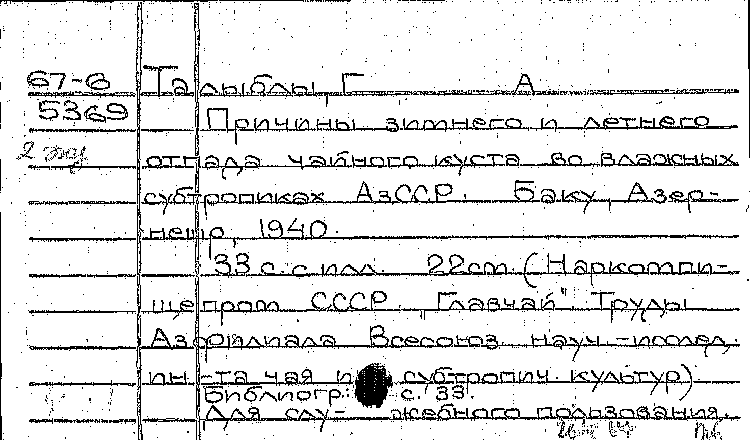 67-6 Талыблы, Г А
5369 Причины зимнего и летнего
2 экз отпада чайного куста во влажных
субтропиках АзССР. Баку, Азер-
нешр, 1940.
33 с. с илл. 22cm. (Наркомпи-
щепром СССР. "Главчай". Труды
Азфилиала Всесоюз. науч.-исслед.
ин-та чая и субтропич. культур)
Библиогр.: с. 33.
Для слу- жебного пользования.